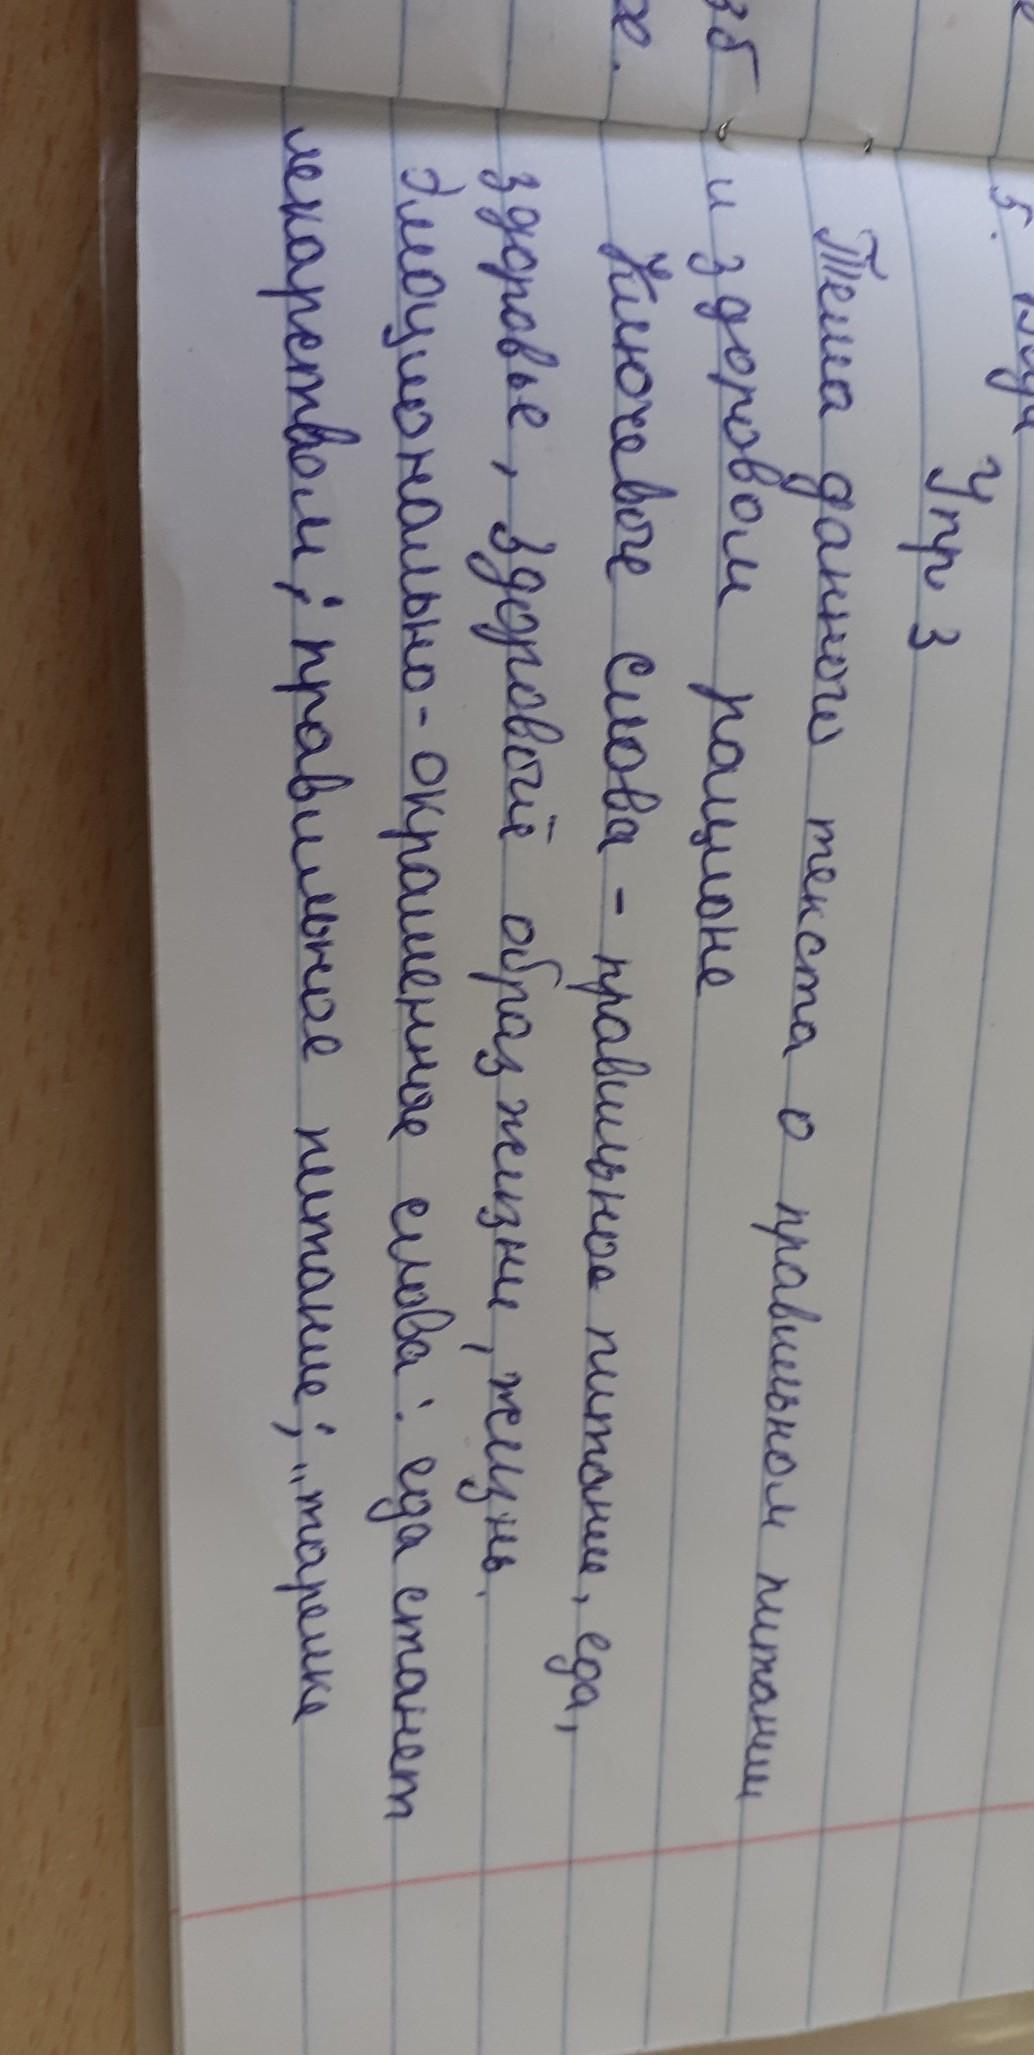 Упр 3
Тема данного текста о правильном питании
и здоровом рационе
Ключевые слова - правильное питание, еда,
здоровье, здоровый образ жизни, жизнь.
Эмоционально-окрашенное слова: еда станет
лекарством; правильное питание; „тарелка